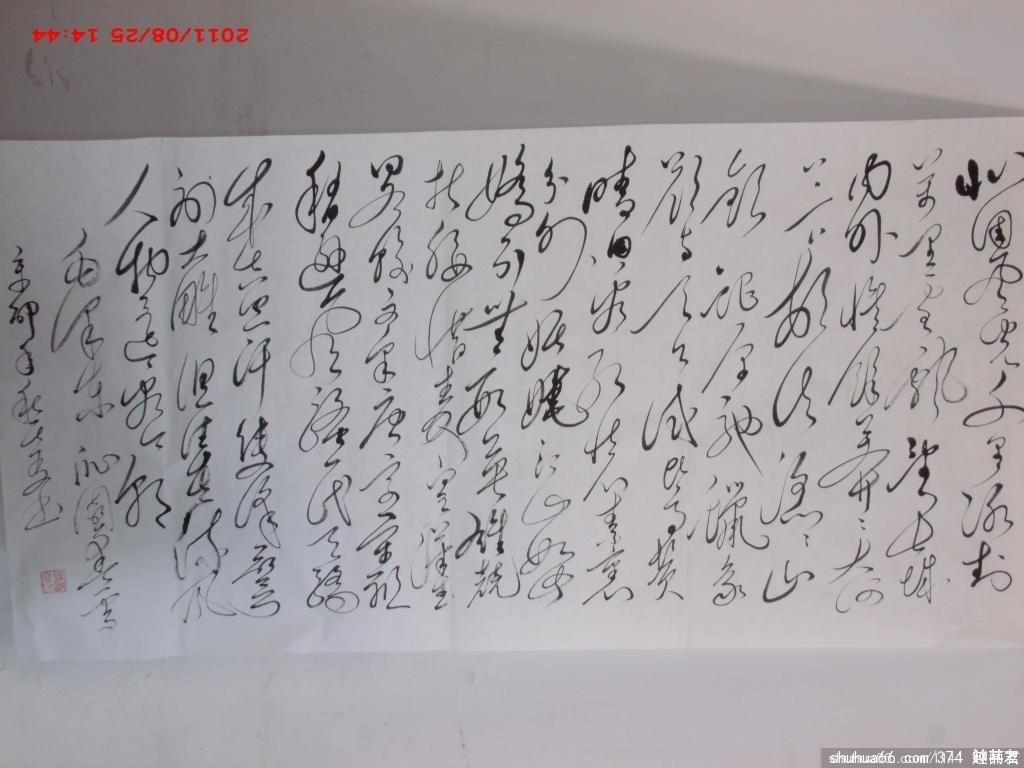 北国风光千里冰封
万里雪飘望长城
内外惟馀莽莽大河
上下顿失滔滔山
银蛇原驰蜡象
欲与天公试比高须
晴日看红装素裹
分外妖娆江山如此
娇引無数英雄競
折腰惜秦皇
略输文采唐宗宋祖
稍逊风骚一代天骄
成吉思汗
射大雕俱往矣
人物还看今朝
毛泽东沁园春雪
辛卯年秋
2011/08/25 14:44
shuhua66.com/1374